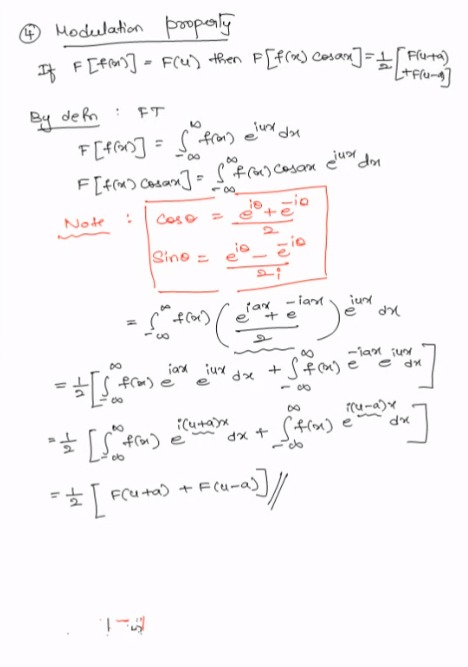 ④ Modulation property
If F[f(x)] = F(u) then F[f(x) cosax] = 1/2 [F(u+a) + F(u-a)]
By defn : FT
F[f(x)] = ∫_{-∞}^{∞} f(x) e^{iux} dx
F[f(x) cosax] = ∫_{-∞}^{∞} f(x) cosax e^{iux} dx
Note : cosθ = (e^{iθ} + e^{-iθ})/2
Sinθ = (e^{iθ} - e^{-iθ})/2i
= ∫_{-∞}^{∞} f(x) ((e^{iax} + e^{-iax})/2) e^{iux} dx
= 1/2 [∫_{-∞}^{∞} f(x) e^{iax} e^{iux} dx + ∫_{-∞}^{∞} f(x) e^{-iax} e^{iux} dx]
= 1/2 [∫_{-∞}^{∞} f(x) e^{i(u+a)x} dx + ∫_{-∞}^{∞} f(x) e^{i(u-a)x} dx]
= 1/2 [F(u+a) + F(u-a)] //